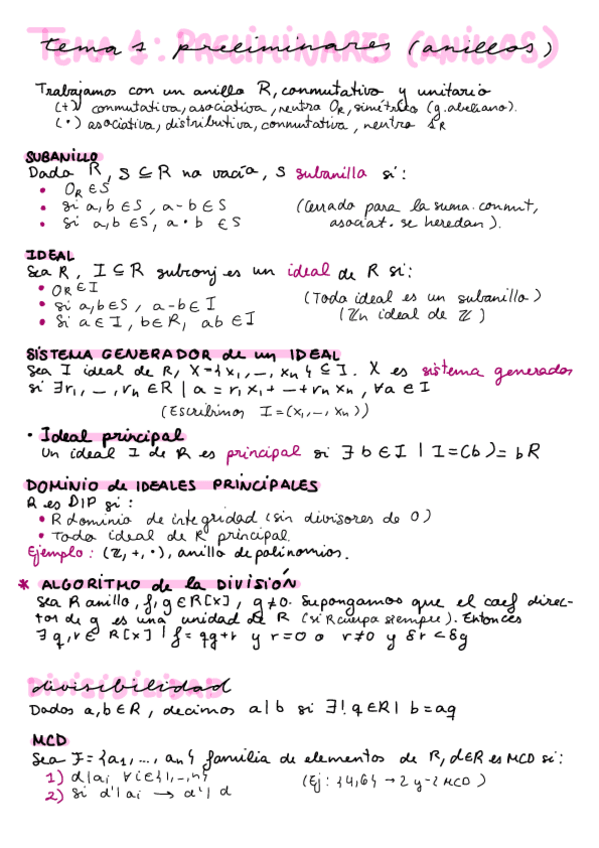 Tema 1: preliminares (anillos)
Trabajamos con un anillo R, conmutativo y unitario
(+) conmutativa, asociativa, neutro O_R, simétrico (g. abeliano).
(·) asociativa, distributiva, conmutativa, neutro 1_R
SUBANILLO
Dado R, S ⊆ R no vacío, S subanillo si:
• O_R ∈ S
• Si a,b ∈ S, a-b ∈ S (Cerrado para la suma. conmut,
• Si a,b ∈ S, a·b ∈ S asociat. se heredan).
IDEAL
Sea R, I ⊆ R subconj es un ideal de R si:
• O_R ∈ I
• Si a,b ∈ S, a-b ∈ I (Todo ideal es un subanillo)
• Si a ∈ I, b ∈ R, ab ∈ I (ℤn ideal de ℤ)
SISTEMA GENERADOR de un IDEAL
Sea I ideal de R, X={x₁,–,xₙ} ⊆ I. X es sistema generador
si ∃r₁,–,rₙ ∈ R | a = r₁x₁+–+rₙxₙ, ∀a ∈ I
(Escribimos I=(x₁,–,xₙ))
• Ideal principal
Un ideal I de R es principal si ∃ b ∈ I | I=(b)= bR
DOMINIO de IDEALES PRINCIPALES
R es DIP si:
• R dominio de integridad (sin divisores de 0)
• Todo ideal de R principal.
Ejemplo: (ℤ,+,·), anillo de polinomios.
* ALGORITMO de la DIVISIÓN
Sea R anillo, f,g ∈ R[x], g≠0. Supongamos que el coef direc-
tor de g es una unidad de R (si R cuerpo siempre). Entonces
∃ q,r ∈ R[x] | f= qg+r y r=0 o r≠0 y δr < δg
divisibilidad
Dados a,b ∈ R, decimos a|b si ∃! q ∈ R | b=aq
MCD
Sea F={a₁,...,aₙ} familia de elementos de R, d∈R es MCD si:
1) d|aᵢ ∀i∈{1,–,n} (Ej: {4,6} → 2 y -2 MCD)
2) Si d'|aᵢ → d'|d